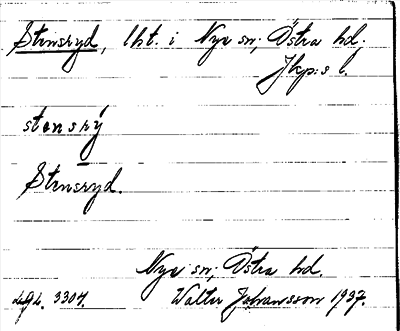 Stensryd, lht. i Nye sn; Östra hd;
Jkp:s l.
stensrý
Stensryd.
Nye sn; Östra hd.
Walter Johansson 1937.